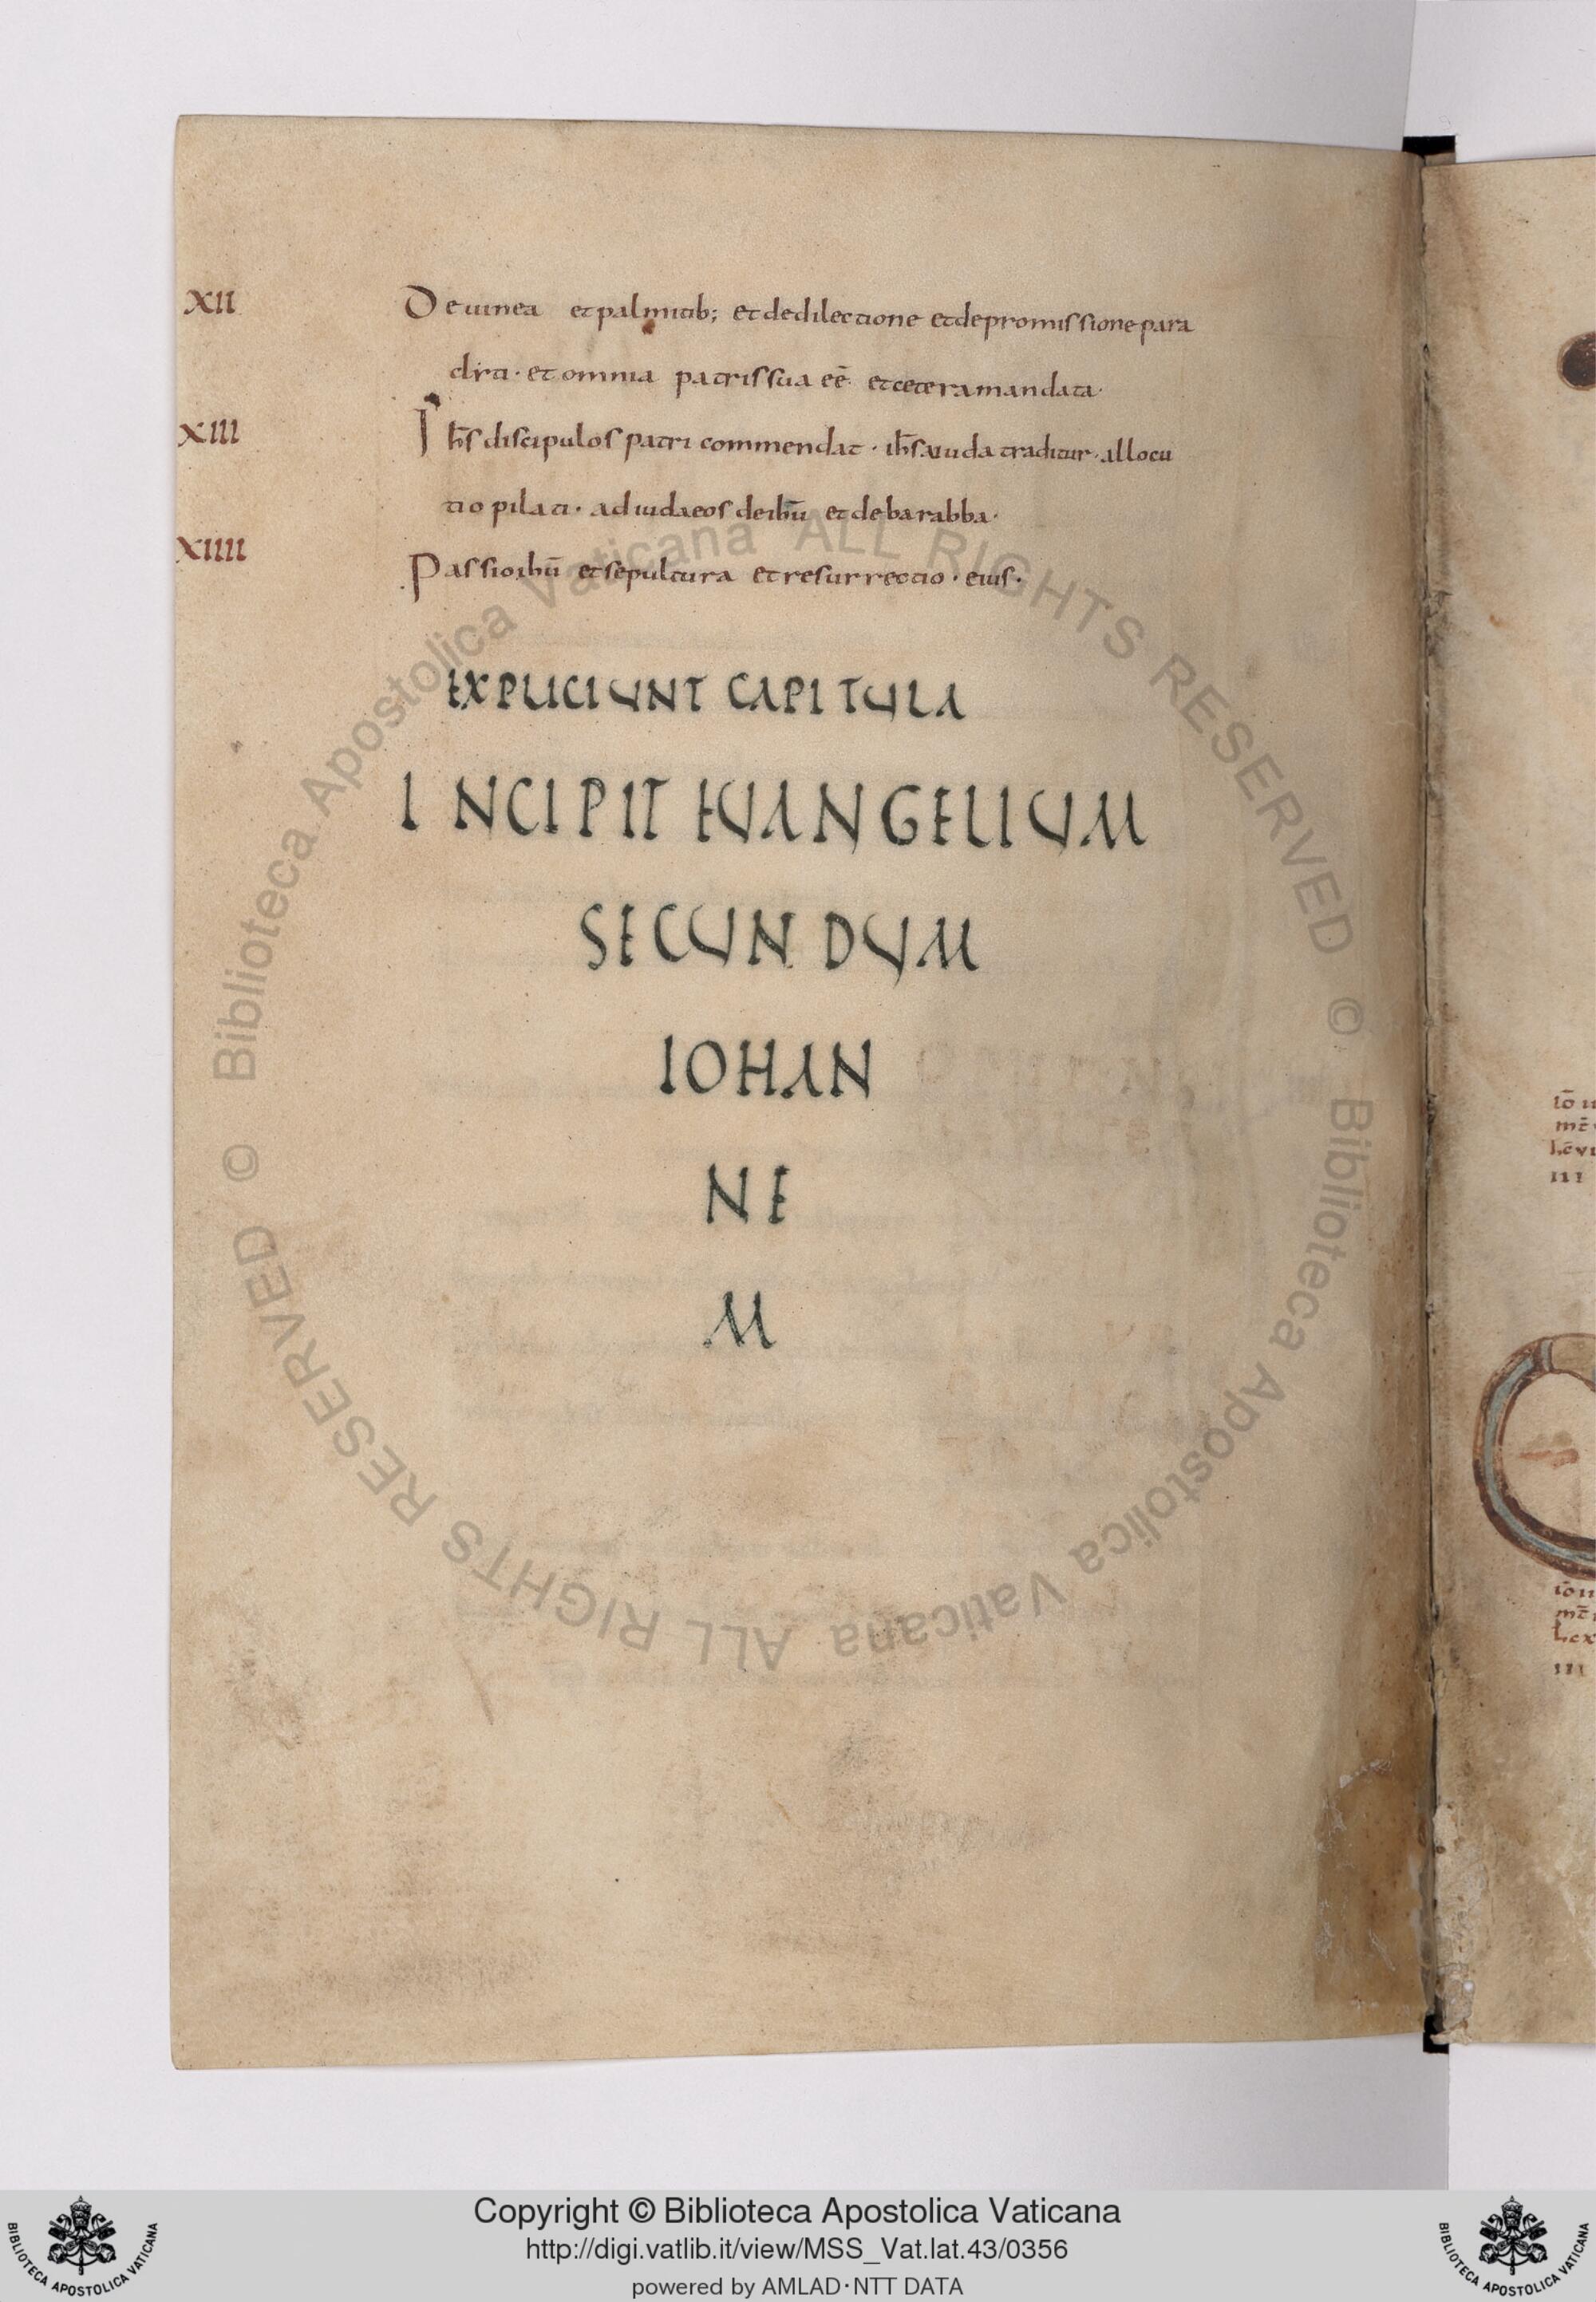 XII De uinea et palmitib; et de dilectione et de promissione para
cliti · et omnia patris sua eē et cetera mandata ·
XIII Ihs̄ discipulos patri commendat · ihs̄ a iuda traditur · allocu
tio pilati · ad iudaeos de ihū et de barabba ·
XIIII Passio ihū et sepultura et resurrectio · eius ·
EXPLICIUNT CAPITULA
INCIPIT EUANGELIUM
SECUNDUM
IOHAN
NE
M
Copyright © Biblioteca Apostolica Vaticana
http://digi.vatlib.it/view/MSS_Vat.lat.43/0356
powered by AMLAD·NTT DATA
BIBLIOTECA APOSTOLICA VATICANA
BIBLIOTECA APOSTOLICA VATICANA
© Biblioteca Apostolica Vaticana ALL RIGHTS RESERVED
© Biblioteca Apostolica Vaticana ALL RIGHTS RESERVED